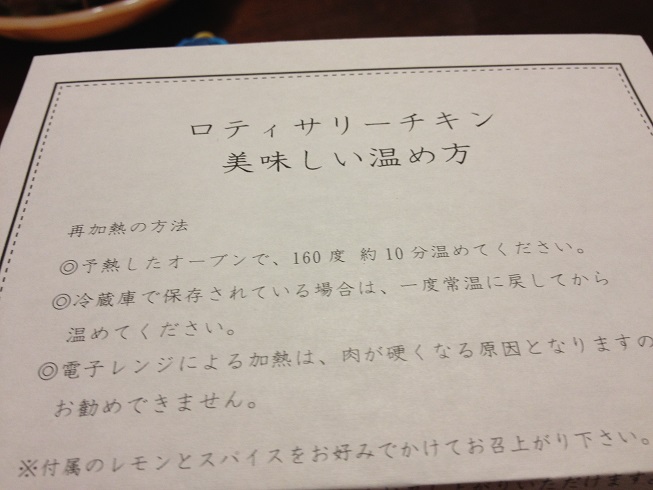 ロティサリーチキン
美味しい温め方
再加熱の方法
◎予熱したオーブンで、160度 約10分温めてください。
◎冷蔵庫で保存されている場合は、一度常温に戻してから
温めてください。
◎電子レンジによる加熱は、肉が硬くなる原因となりますの
お勧めできません。
※付属のレモンとスパイスをお好みでかけてお召上がり下さい。
いただけます。